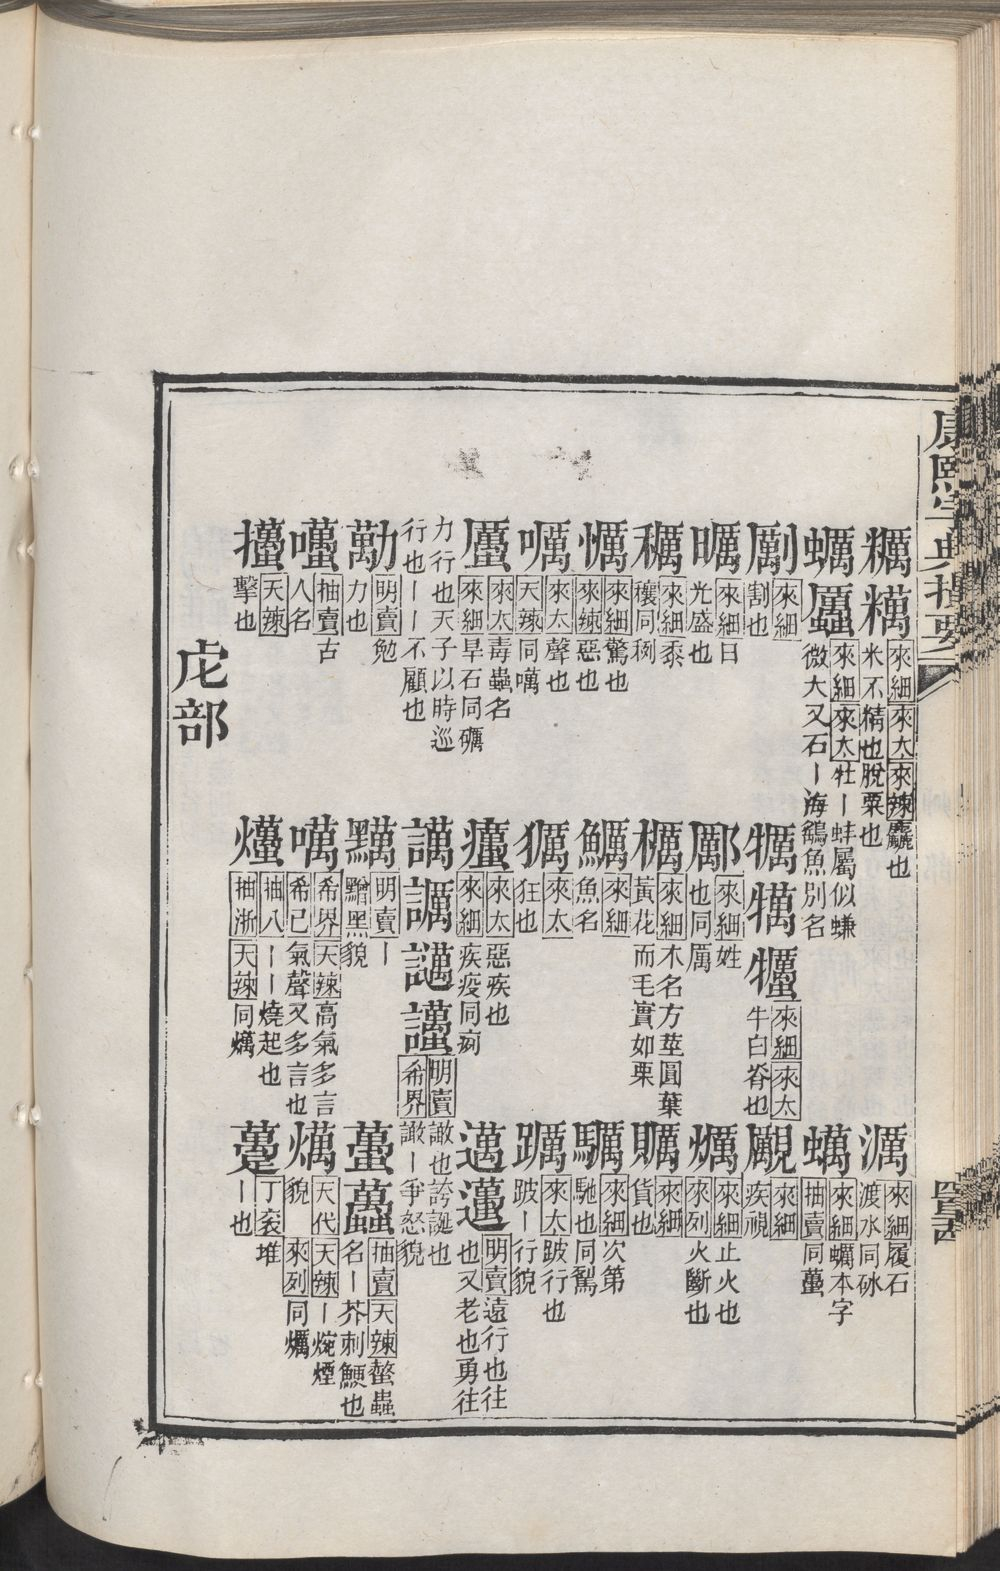 康熙字典撮要
糲𥽖 來細 來太 來辣 麤也
米不精也脫粟也
濿 來細 履石
渡水同砅
蠣 來細 來太 牡ー蚌屬似蠊
微大又石ー海鷂魚別名
蠇 來細 蠣本字
抽賣 同蠆
來細
割也
犡 來細 來太
牛白脊也
來細
疾視
曞 來細 日
光盛也
來細 姓
也同厲
爄 來細 止火也
來列 火斷也
來細 黍
穰同䅀
櫔 來細 木名方莖圓葉
黃花而毛實如栗
來細
貨也
來細 驚也
來辣 惡也
鱱 來細
魚名
來細 次第
馳也同鴷
來太 聲也
天辣 同噧
來太
狂也
來太 跛行也
跛ー行貌
來太 毒蟲名
來細 旱石同礪
來太 惡疾也
來細 疾疫同痢
邁 明賣 遠行也往
也又老也勇往
力行也天子以時巡
行也ーー不顧也
明賣 譀也誇誕也
希界 譀ー爭怒貌
勱 明賣 勉
力也
明賣 ー
黵黑貌
蠆 抽賣 天辣 螫蟲
名ー芥刺鯁也
囆 抽賣 古
人名
噧 希界 天辣 高氣多言
希已 氣聲又多言也
天代 天辣 ー煙
貌 來列 同爄
天辣
擊也
爡 抽八 ーー燒起也
抽浙 天辣 同
躉 丁衮 堆
ー也
虍部